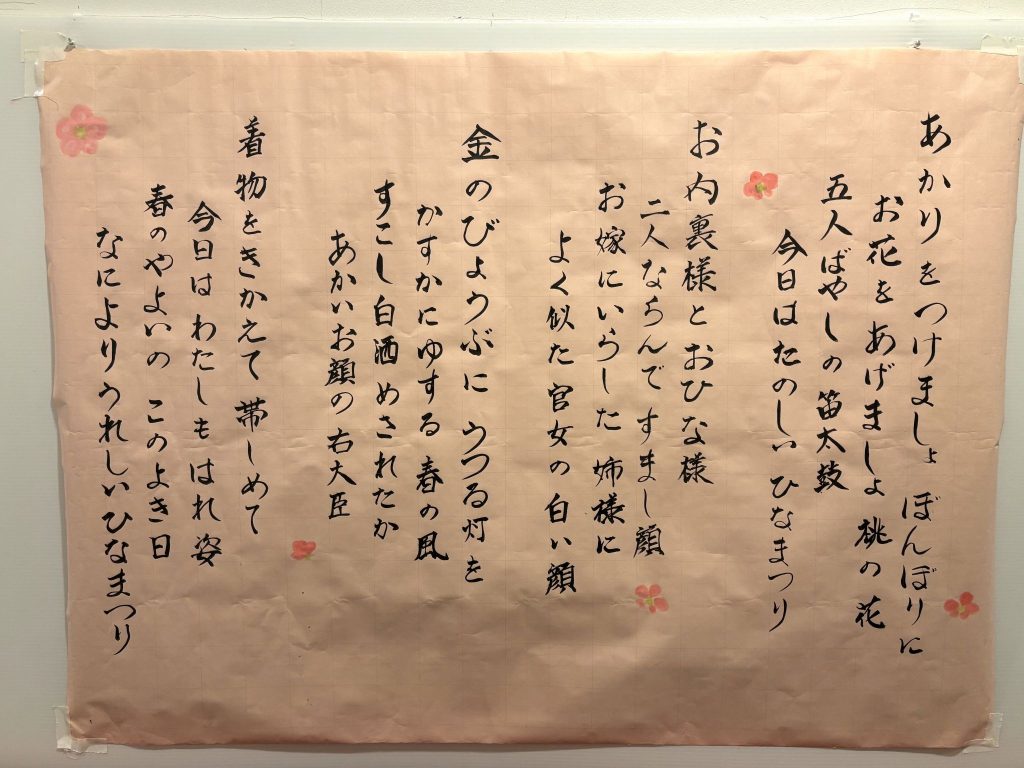 あかりをつけましょ ぼんぼりに
お花をあげましょ 桃の花
五人ばやしの笛太鼓
今日はたのしい ひなまつり
お内裏様と おひな様
二人ならんで すまし顔
お嫁にいらした 姉様に
よく似た 官女の 白い顔
金のびょうぶに うつる灯を
かすかにゆする 春の風
すこし白酒 めされたか
あかいお顔の 右大臣
着物をきかえて 帯しめて
今日は わたしも はれ姿
春のやよいの このよき日
なにより うれしい ひなまつり